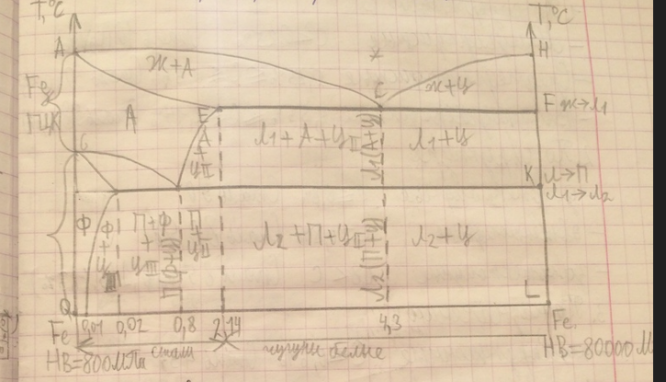 T,°C
T,°C
A
H
Ж+А
Ж
Fe
ГЦК
А
E
C
Ж+Ц
F ж→Л1
А
+
ЦII
Л1+А+ЦII
Л1(А+Ц)
Л1+Ц
K А→П
Л1→Л2
Ф
Ф
+
Ц
III
П+Ф
+
ЦIII
П(Ф+Ц)
П
+
ЦII
Л2+П+ЦII
Л2(П+Ц)
Л2+Ц
Q
L
Fe
0,01
0,02
0,8
2,14
4,3
Fe
стали
чугуны белые
HB=800МПа
HB=80000М